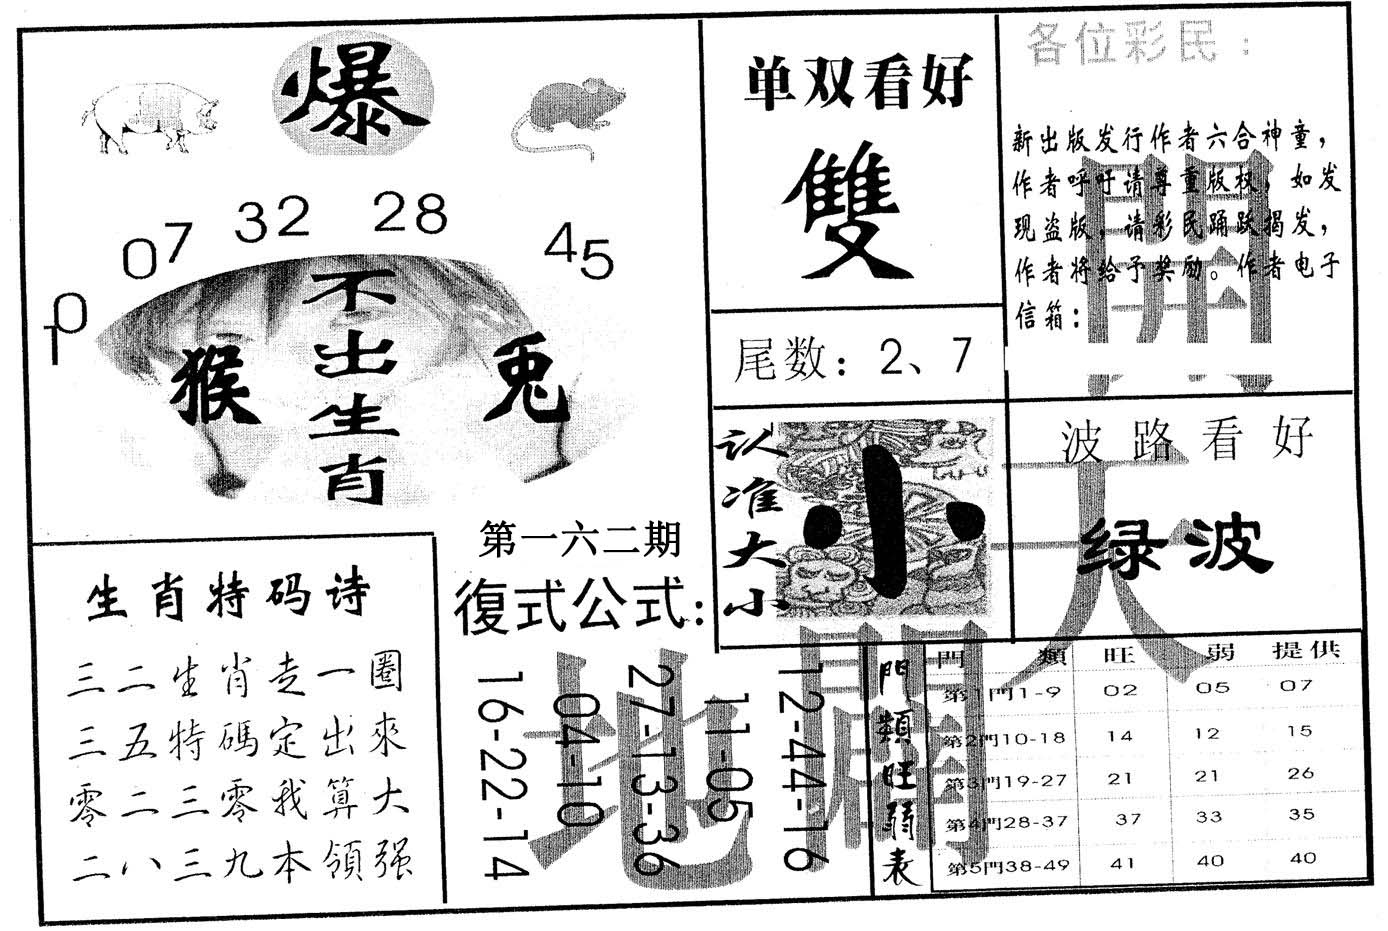 爆
10 07 32 28 45
不出生肖
猴
兎
单双看好
雙
尾数：2、7
各位彩民：
新出版发行作者六合神童，
作者呼吁请尊重版权，如发
现盗版，请彩民踊跃揭发，
作者将给予奖励。作者电子
信箱：
认准大小
小
波路看好
绿波
生肖特码诗
三二生肖走一圈
三五特碼定出來
零二三零我算大
二八三九本領强
第一六二期
復式公式：
16-22-14
04-10
27-13-36
11-05
12-44-16
門類旺弱表
門 類 旺 弱 提供
第1門1-9 02 05 07
第2門10-18 14 12 15
第3門19-27 21 21 26
第4門28-37 37 33 35
第5門38-49 41 40 40
天
地
開